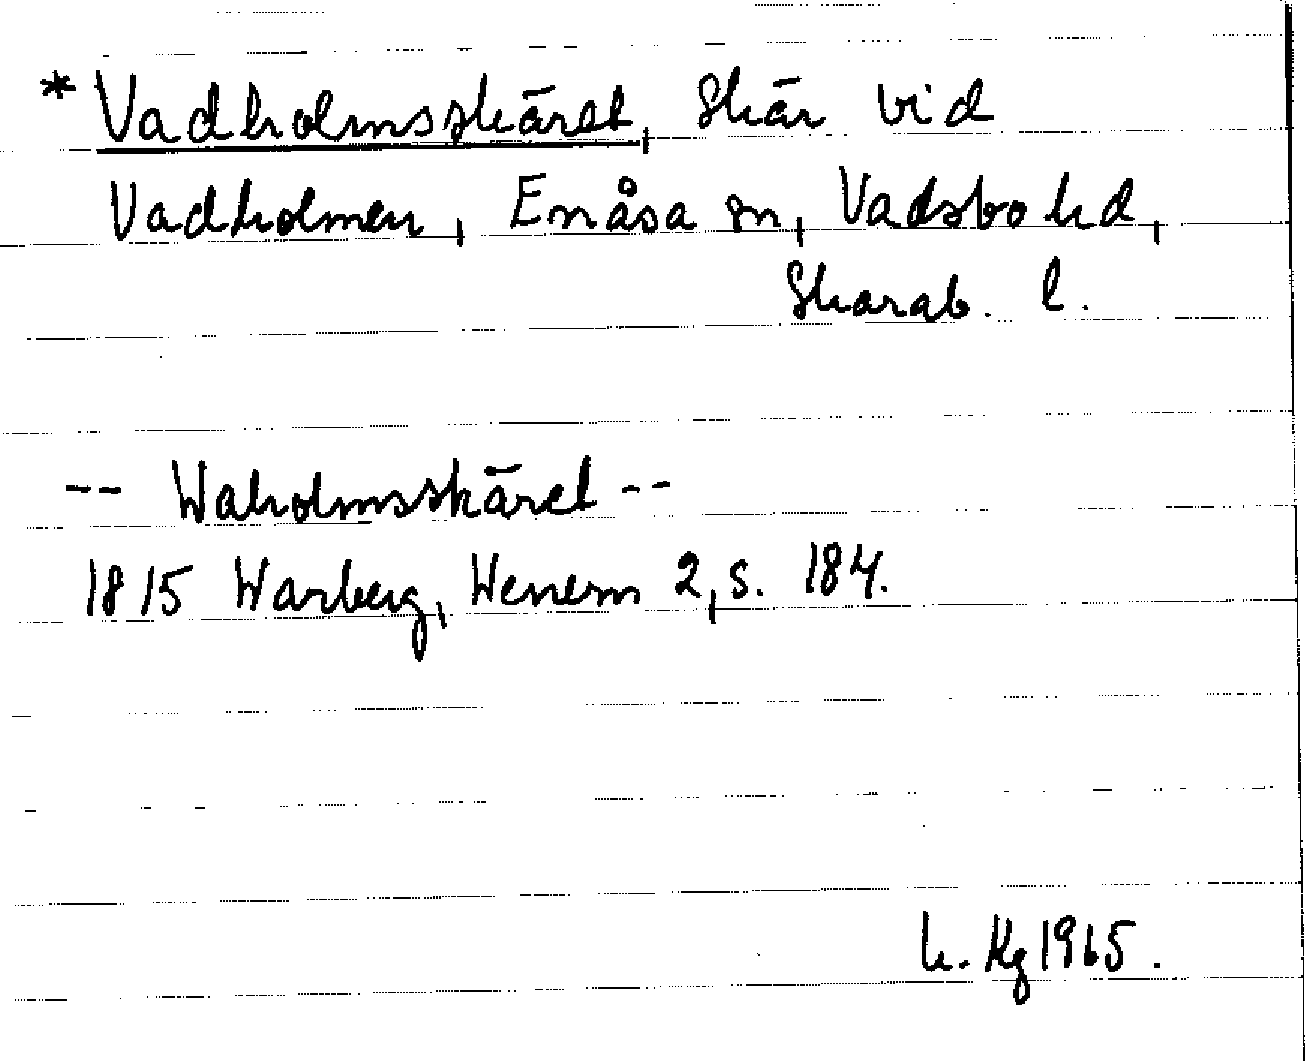 * Vadholmsskäret, skär vid
Vadholmen, Enåsa sn, Vadsbo hd,
Skarab. l.
-- Waholmsskäret --
1815 Warberg, Wenern 2, s. 184.
h. Kg 1965.